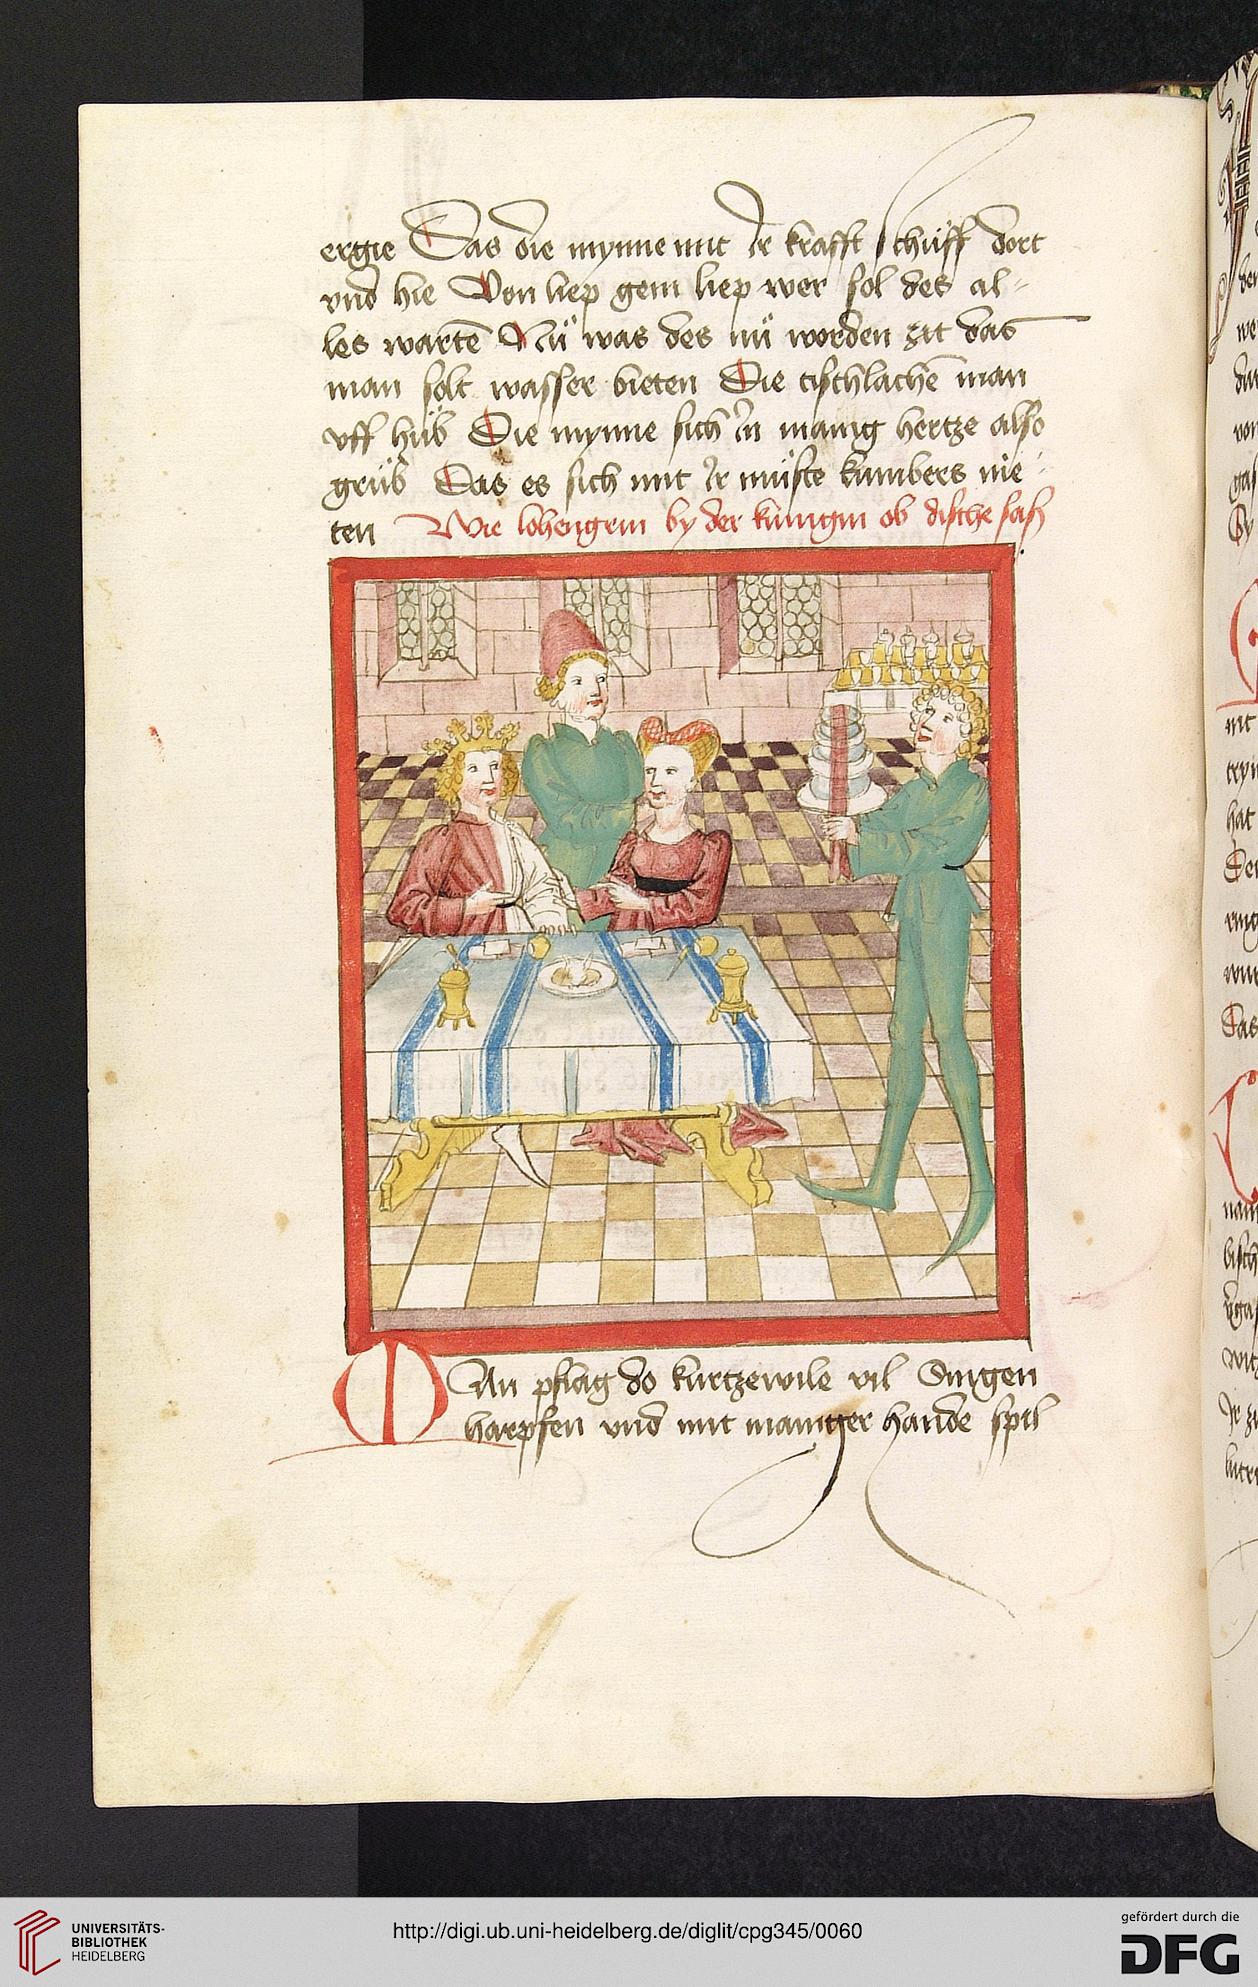 ergie Das die mynne mit ir krafft schüff dort
vnd hie Von liep gein liep wer sol des al-
les wartē Nü was des nü worden zit das
man solt wasser bieten Die tischlachē man
vff hüb Die mynne sich in manig hertze also
grüb Das es sich mit ir müste kumbers nie-
ten Wie lohengrin by der kunigin ob dische saß
MAn pflag do kurtzewile vil Singen
harpfen vnd mit maniger hande spil
UNIVERSITÄTS-
BIBLIOTHEK
HEIDELBERG
http://digi.ub.uni-heidelberg.de/diglit/cpg345/0060
gefördert durch die
DFG